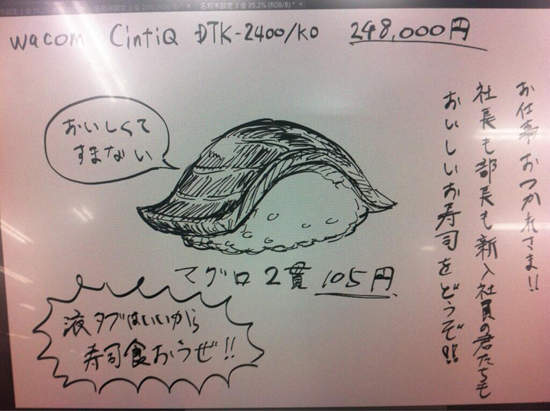 wacom CintiQ DTK-2400/K0 248,000円
お仕事おつかれさま!!
社長も部長も新入社員の君たちも
おいしいお寿司をどうぞ!!
おいしくて
すまない
マグロ2貫 105円
液タブはいいから
寿司食おうぜ!!